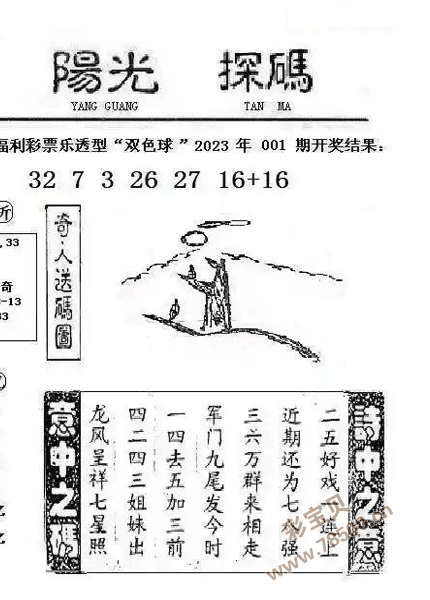 陽光 探碼
YANG GUANG TAN MA
福利彩票乐透型“双色球”2023 年 001 期开奖结果：
32 7 3 26 27 16+16
析
,33
奇
-13
33
奇·人送碼圖
詩中之意
二五好戏一连上
近期还为七令强
三六万群来相走
军门九尾发今时
一四去五加三前
四二四三姐妹出
龙凤呈祥七星照
意中之碼
彩宝贝
www.78500.cn